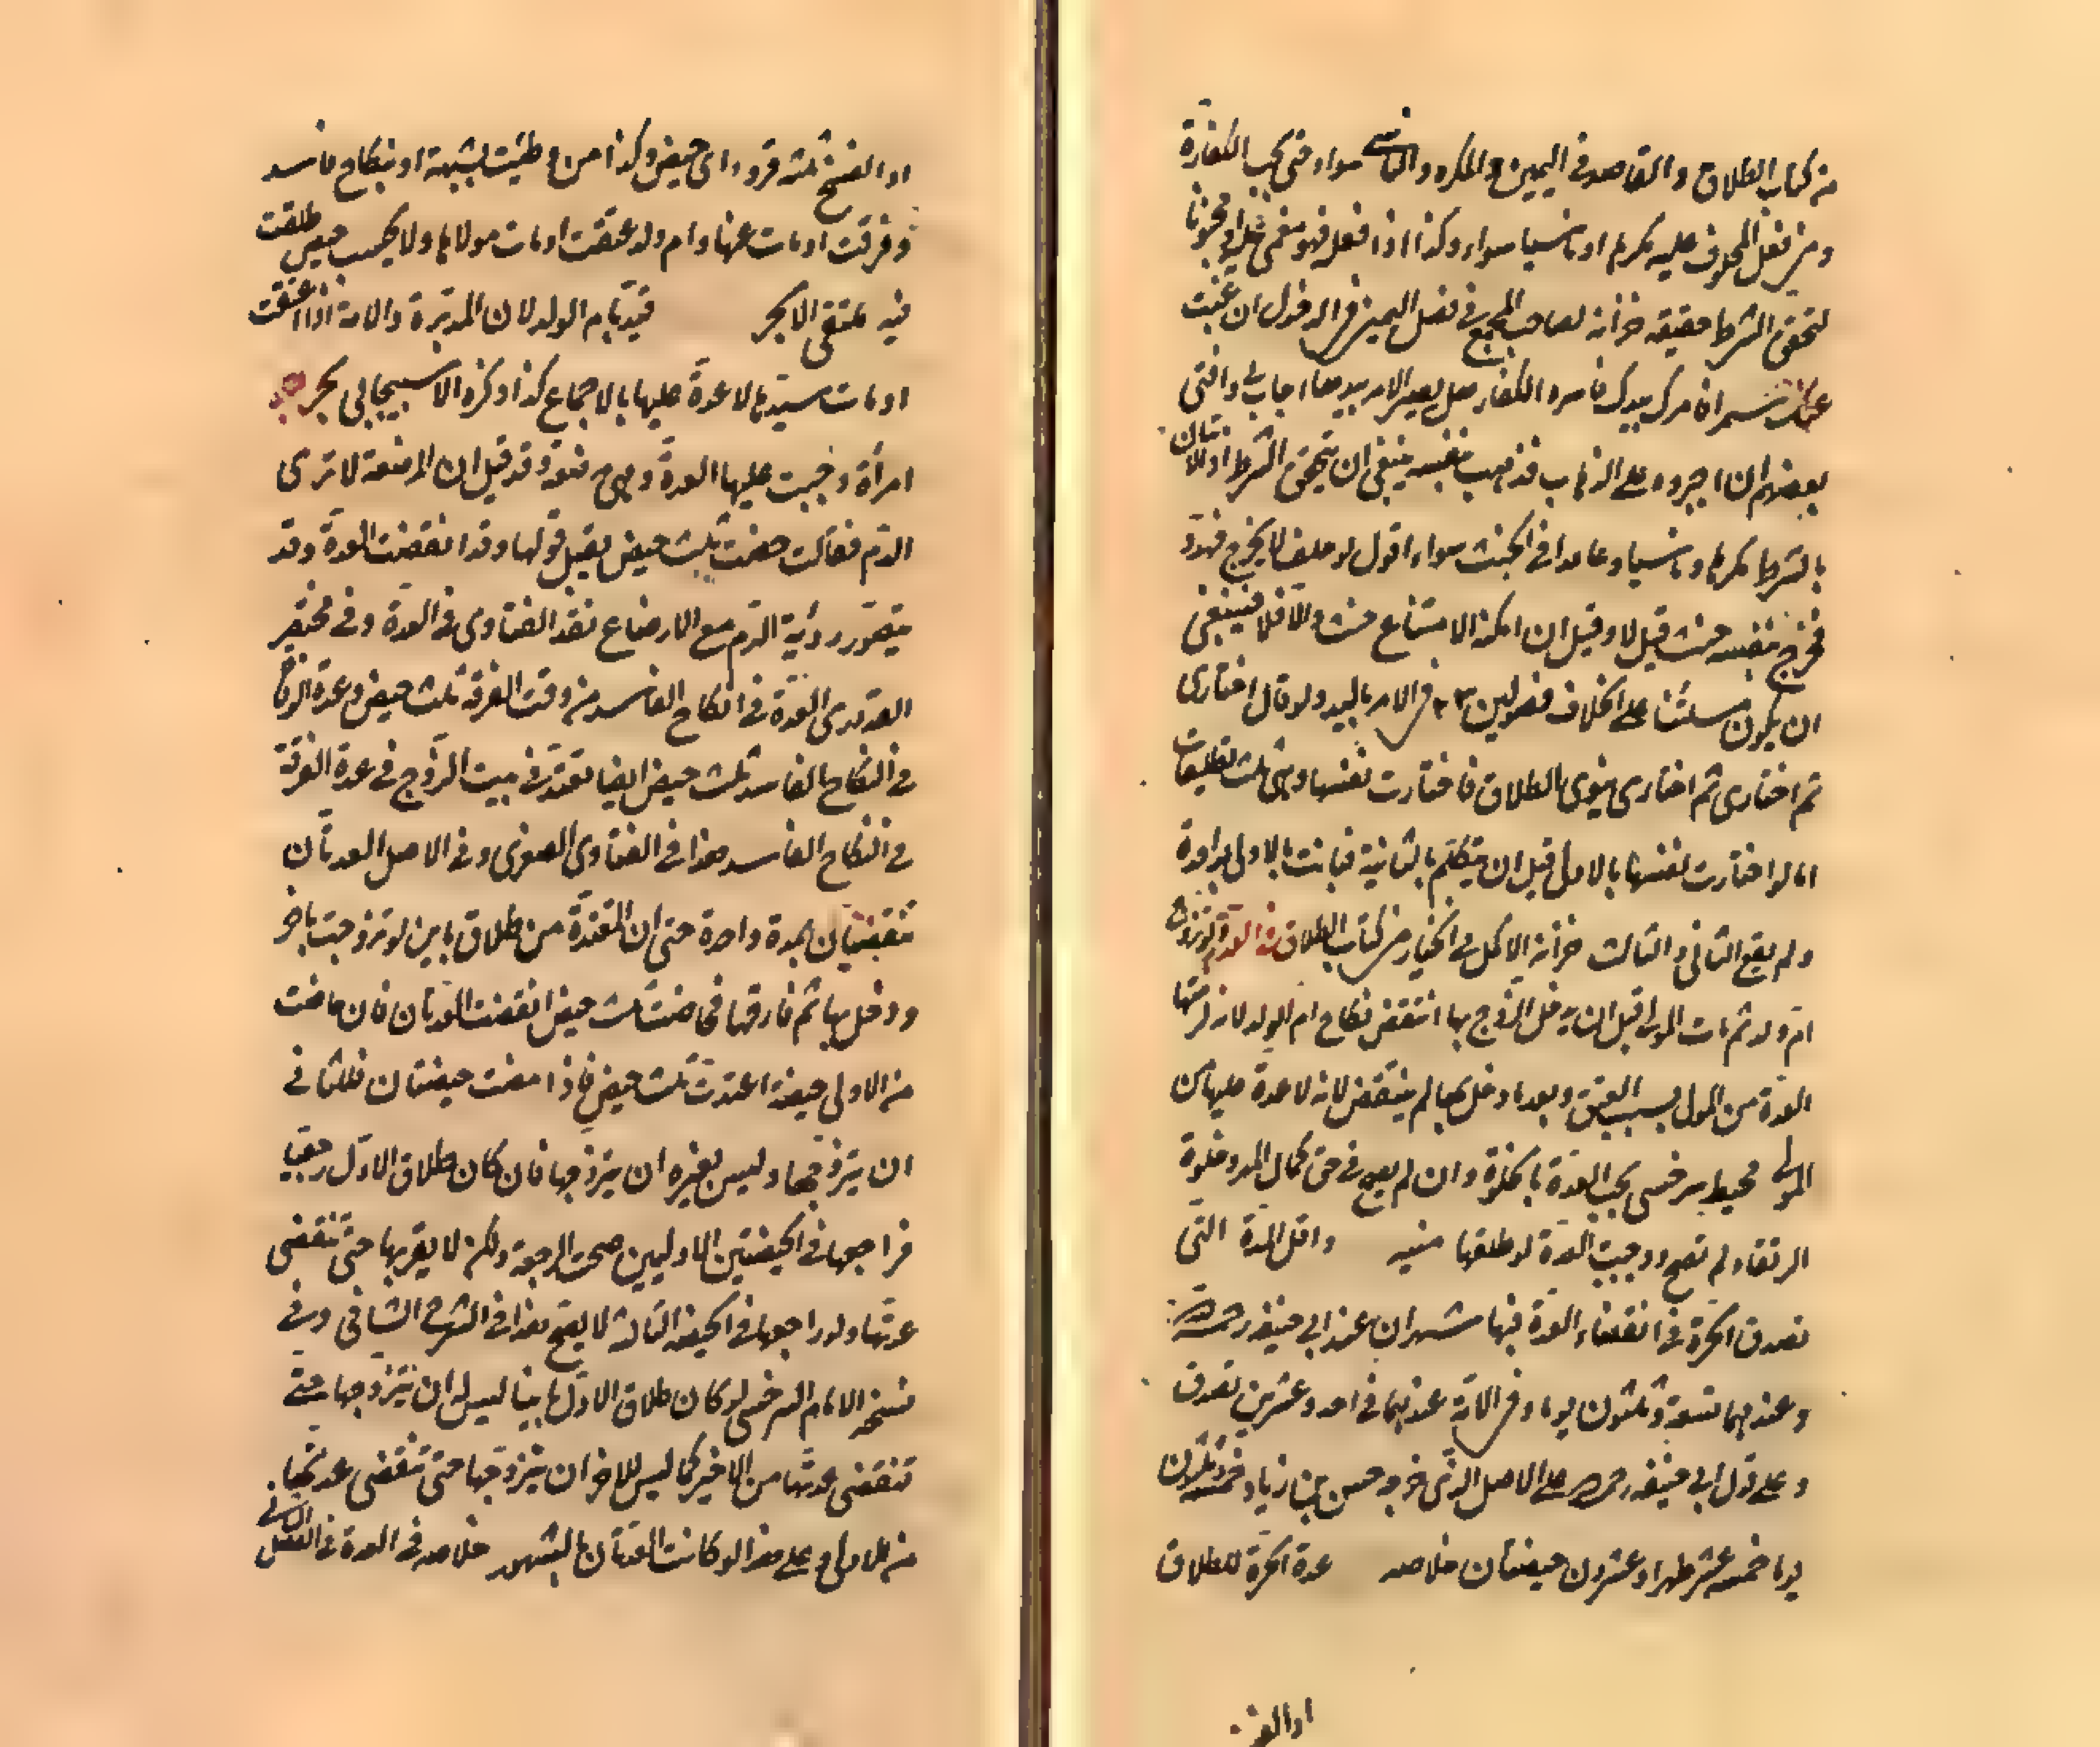 من كتاب الطلاق والقاصد في اليمين والمكره والناسي سواء حتى يجب الكفارة
ومن فعل المحلوف عليه مكرها او ناسيا سواء وكذا اذا فعله وهو مغمى عليه او مجنونا
لتحقق الشرط حقيقة خزانة لصاحب المجمع في فصل اليمين في الدخول ان غبت
بعضهم ان اجبروه على الذهاب فذهب بنفسه ينبغي ان يتحقق الشرط اذ الاتيان
بالشرط مكرها وناسيا وعامدا في الحنث سواء اقول لو حلف لا يخرج فهدد
فخرج بنفسه حنث قيل لا وقيل ان امكنه الامتناع حنث والا فلا فينبغي
ان يكون مسئلتنا على الخلاف فصولين ٢٣ في الامر باليد ولو قال اختاري
ثم اختاري ثم اختاري ينوي الطلاق فاختارت نفسها وهي ثلث تطليقات
اما لو اختارت نفسها بالاولى قبل ان يتكلم بالثانية فبانت بالاولى بواحدة
ولم يقع الثاني والثالث خزانة الاكمل في الخيار من كتاب الطلاق في العدة ولو تزوج
ام ولد ثم مات المولى قبل ان يدخل الزوج بها انتقض نكاح ام الولد لانه لزمتها
العدة من المولى بسبب العتق وبعد ما دخل بها لم ينتقض لانه لا عدة عليها من
المولى محيط سرخسي يجب العدة بالخلوة وان لم يصح في حق كمال المهر وخلوة
الرتقاء لم تصح ووجبت العدة لو طلقها منيه واقل المدة التي
تصدق الحرة في انقضاء العدة فيها شهران عند ابي حنيفة رحمه الله
وعندهما تسعة وثلثون يوما وفي الامة عندهما في احد وعشرين تصدق
وعلى قول ابي حنيفة رحمه الله على الاصل الذي خرجه حسن بن زياد خمسة وثلثون
يوما خمسة عشر طهرا وعشرون حيضتان خلاصه عدة الحرة للطلاق
او الفسخ
او الفسخ ثلثة قروء اى حيض وكذا من وطئت بشبهة او بنكاح فاسد
وفرقت او مات عنها وام ولد عتقت او مات مولاها ولا يحسب حيض طلقت
فيه ملتقى الابحر قيد بام الولد لان المدبرة والامة اذا اعتقت
او مات سيدها لا عدة عليها بالاجماع كذا ذكره الاسبيجابي بحر
امرأة وجبت عليها العدة وهي مرضعة وقد قيل ان المرضعة لا ترى
الدم فقالت حضت ثلث حيض يقبل قولها وقد انقضت العدة وقد
يتصور رؤية الدم مع الارضاع نقد الفتاوى في العدة وفي مختصر
القدوري العدة في النكاح الفاسد من وقت الفرقة ثلث حيض وعدة الوفاة
في النكاح الفاسد ثلث حيض ايضا تعتد في بيت الزوج في عدة الفرقة
في النكاح الفاسد هذا في الفتاوى الصغرى وفي الاصل العدتان
تنقضيان بمدة واحدة حتى ان المعتدة من طلاق باين لو تزوجت باخر
ودخل بها ثم فارقها فحاضت ثلث حيض انقضت العدتان فان حاضت
من الاولى حيضة اعتدت ثلث حيض فاذا مضت حيضتان فللثاني
ان يتزوجها وليس لغيره ان يتزوجها فان كان طلاق الاول رجعيا
فراجعها في الحيضتين الاوليين صحت الرجعة ولكن لا يقربها حتى تنقضي
عدتها ولو راجعها في الحيضة الثالثة لا يصح هذا في الشرح الشافي وفي
نسخة الامام السرخسي لو كان طلاق الاول باينا ليس له ان يتزوجها حتى
تنقضي عدتها من الاخير كما ليس للاخر ان يتزوجها حتى تنقضي عدتها
من الاولى وعلى هذا لو كانت العدتان بالشهور خلاصه في العدة في الفصل الثاني